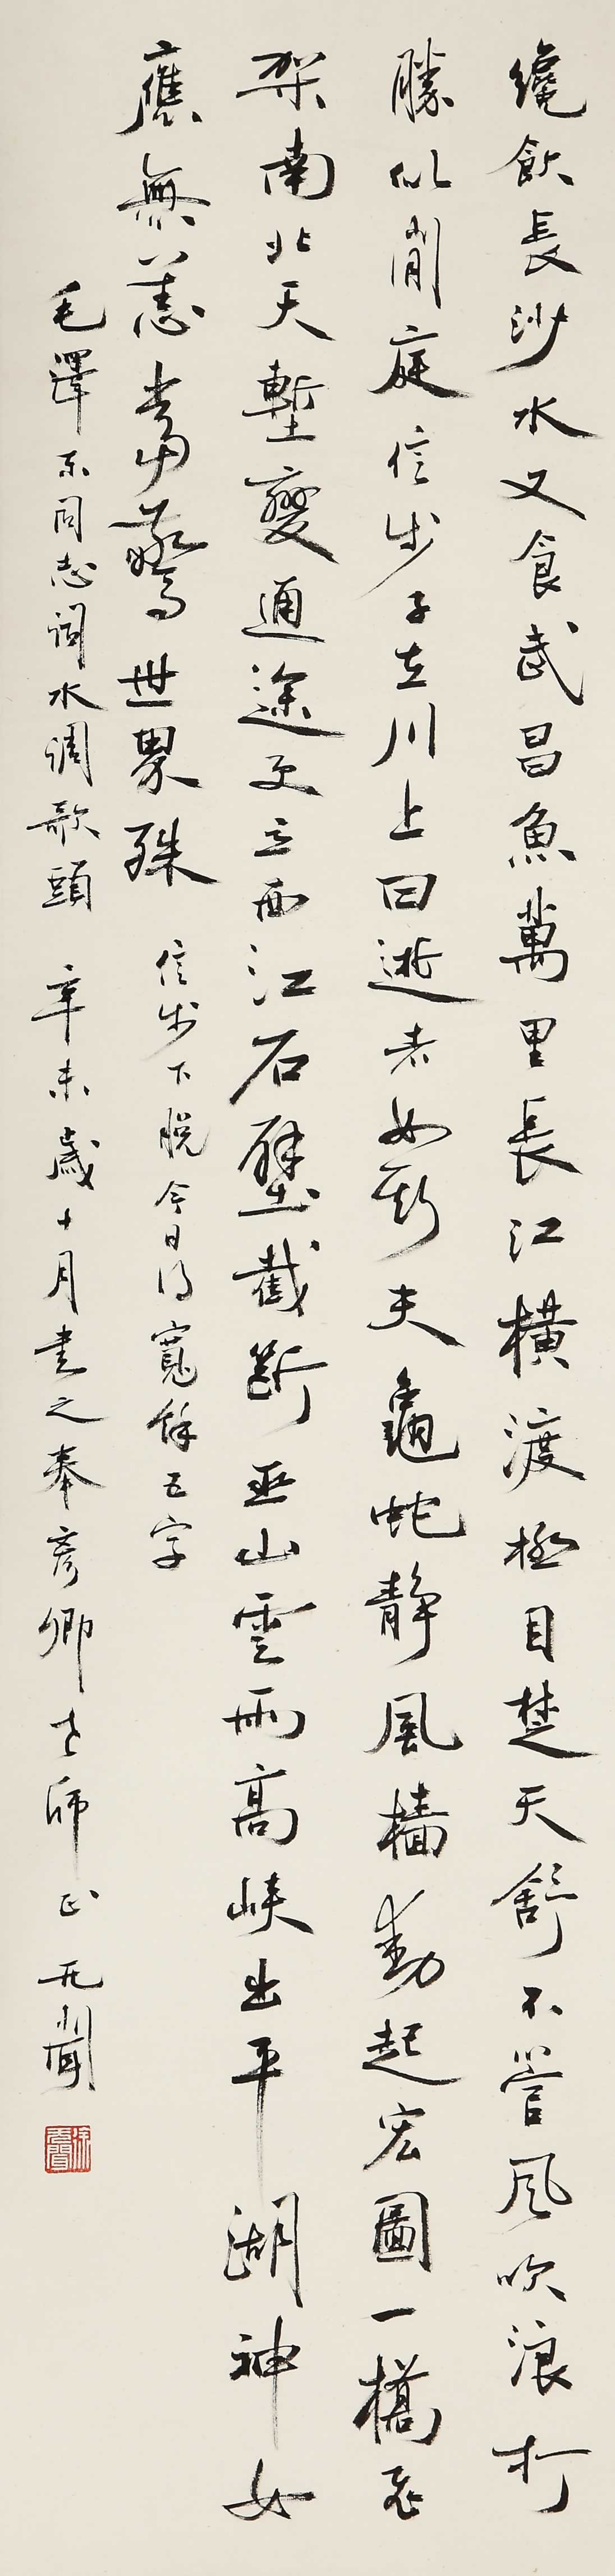 纔飲長沙水又食武昌魚萬里長江橫渡極目楚天舒不管風吹浪打
勝似閒庭信步子在川上曰逝者如斯夫龜蛇靜風檣動起宏圖一橋飛
架南北天塹變通途更立西江石壁截斷巫山雲雨高峽出平湖神女
應無恙當驚世界殊 信步下脫今日得寬餘五字
毛澤東同志詞水調歌頭 辛未歲十月書之奉彥卿老師正 无聞